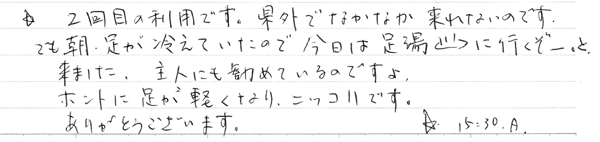 ☆ 2回目の利用です。県外でなかなか来れないのです。
でも朝、足が冷えていたので今日は足湯に行くぞー。と、
来ました。主人にも勧めているのですよ。
ホントに足が軽くなり、ニッコリです。
ありがとうございます。 ☆ 15:30.A.